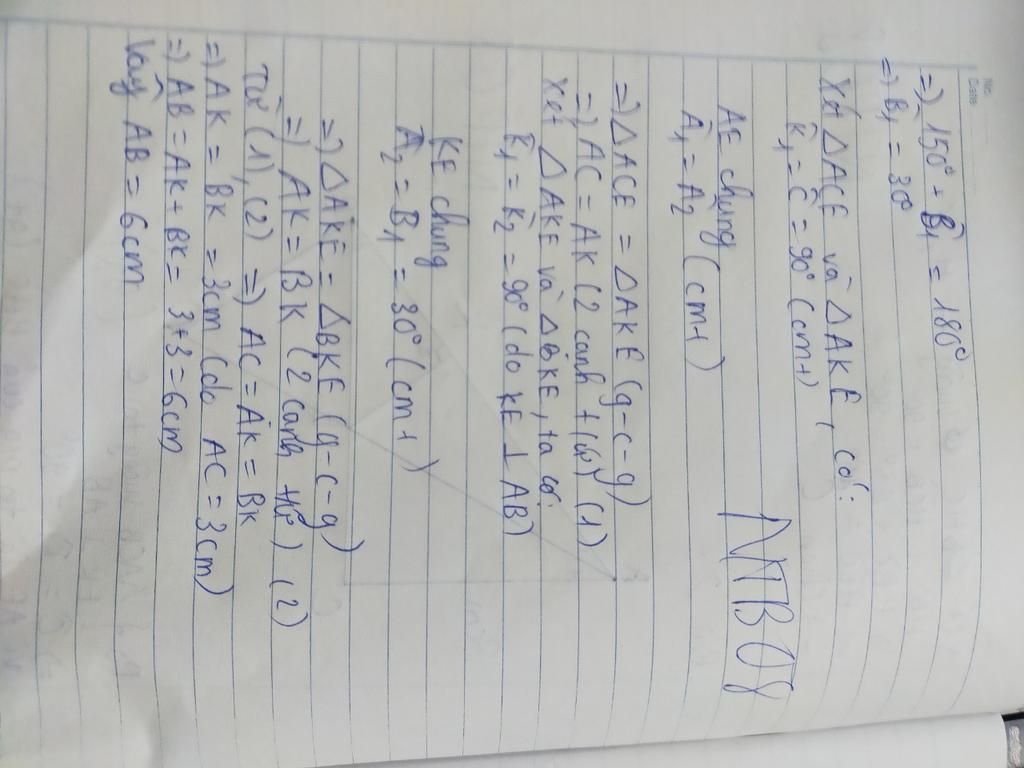 No.
Date
=) 150° + B̂₁ = 180°
=) B̂₁ = 30°
Xét △ACE và △AKE, có:
K̂₁ = Ĉ = 90° (cmt)
AE chung
Â₁ = Â₂ (cmt)
NTB 08
=) △ACE = △AKE (g-c-g)
=) AC = AK (2 cạnh tứ) (1)
Xét △AKE và △BKE, ta có:
K̂₁ = K̂₂ = 90° (do KE ⊥ AB)
KE chung
Â₂ = B̂₁ = 30° (cmt)
=) △AKE = △BKE (g-c-g)
=) AK = BK (2 cạnh tứ) (2)
Từ (1), (2) =) AC = AK = BK
=) AK = BK = 3cm (do AC = 3cm)
=) AB = AK + BK = 3+3 = 6cm
Vậy AB = 6cm